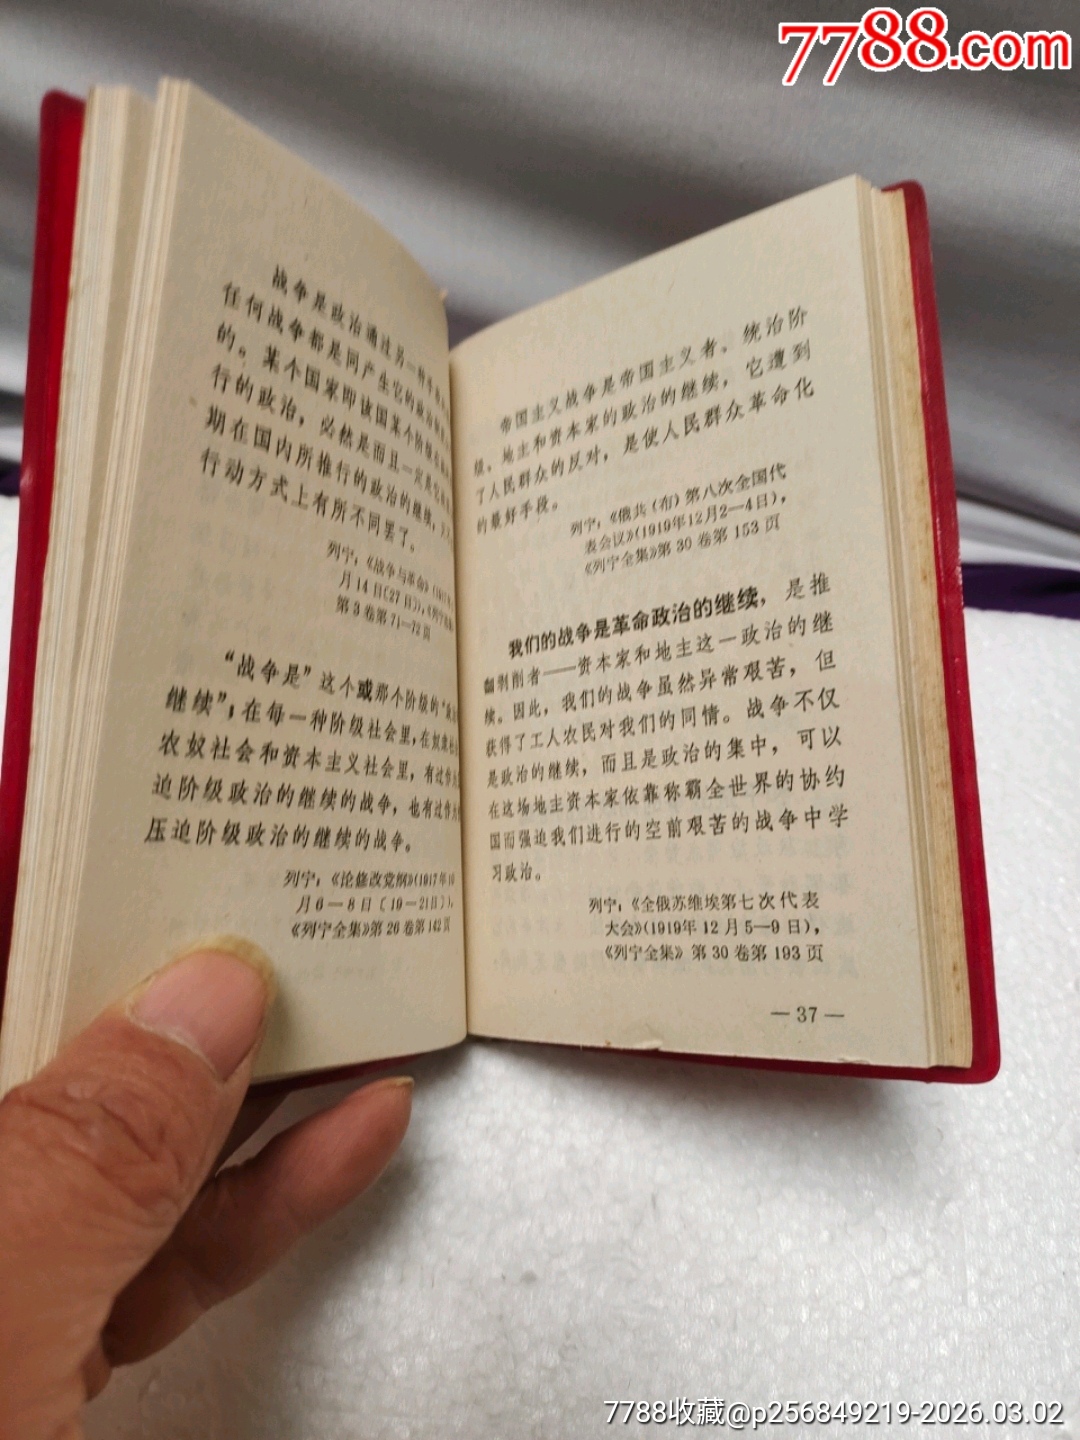 7788.com
战争是政治通过另一种手
任何战争都是同产生它的政治
的。某个国家即该国某个阶级
行的政治，必然是而且一定是
期在国内所推行的政治的继续，
行动方式上有所不同罢了。
列宁：《战争与革命》
月14日〔27日〕），《列宁
第3卷第71—72页
“战争是”这个或那个阶级的“
继续”；在每一种阶级社会里，在奴隶社
农奴社会和资本主义社会里，有过作
迫阶级政治的继续的战争，也有过作
压迫阶级政治的继续的战争。
列宁：《论修改党纲》（1917年10
月6—8日〔19—21日〕），
《列宁全集》第26卷第142页
帝国主义战争是帝国主义者、统治阶
级、地主和资本家的政治的继续，它遭到
了人民群众的反对，是使人民群众革命化
的最好手段。
列宁：《俄共（布）第八次全国代
表会议》（1919年12月2—4日），
《列宁全集》第30卷第153页
我们的战争是革命政治的继续，是推
翻剥削者——资本家和地主这一政治的继
续。因此，我们的战争虽然异常艰苦，但
获得了工人农民对我们的同情。战争不仅
是政治的继续，而且是政治的集中，可以
在这场地主资本家依靠称霸全世界的协约
国而强迫我们进行的空前艰苦的战争中学
习政治。
列宁：《全俄苏维埃第七次代表
大会》（1919年12月5—9日），
《列宁全集》第30卷第193页
—37—
7788收藏@p256849219-2026.03.02